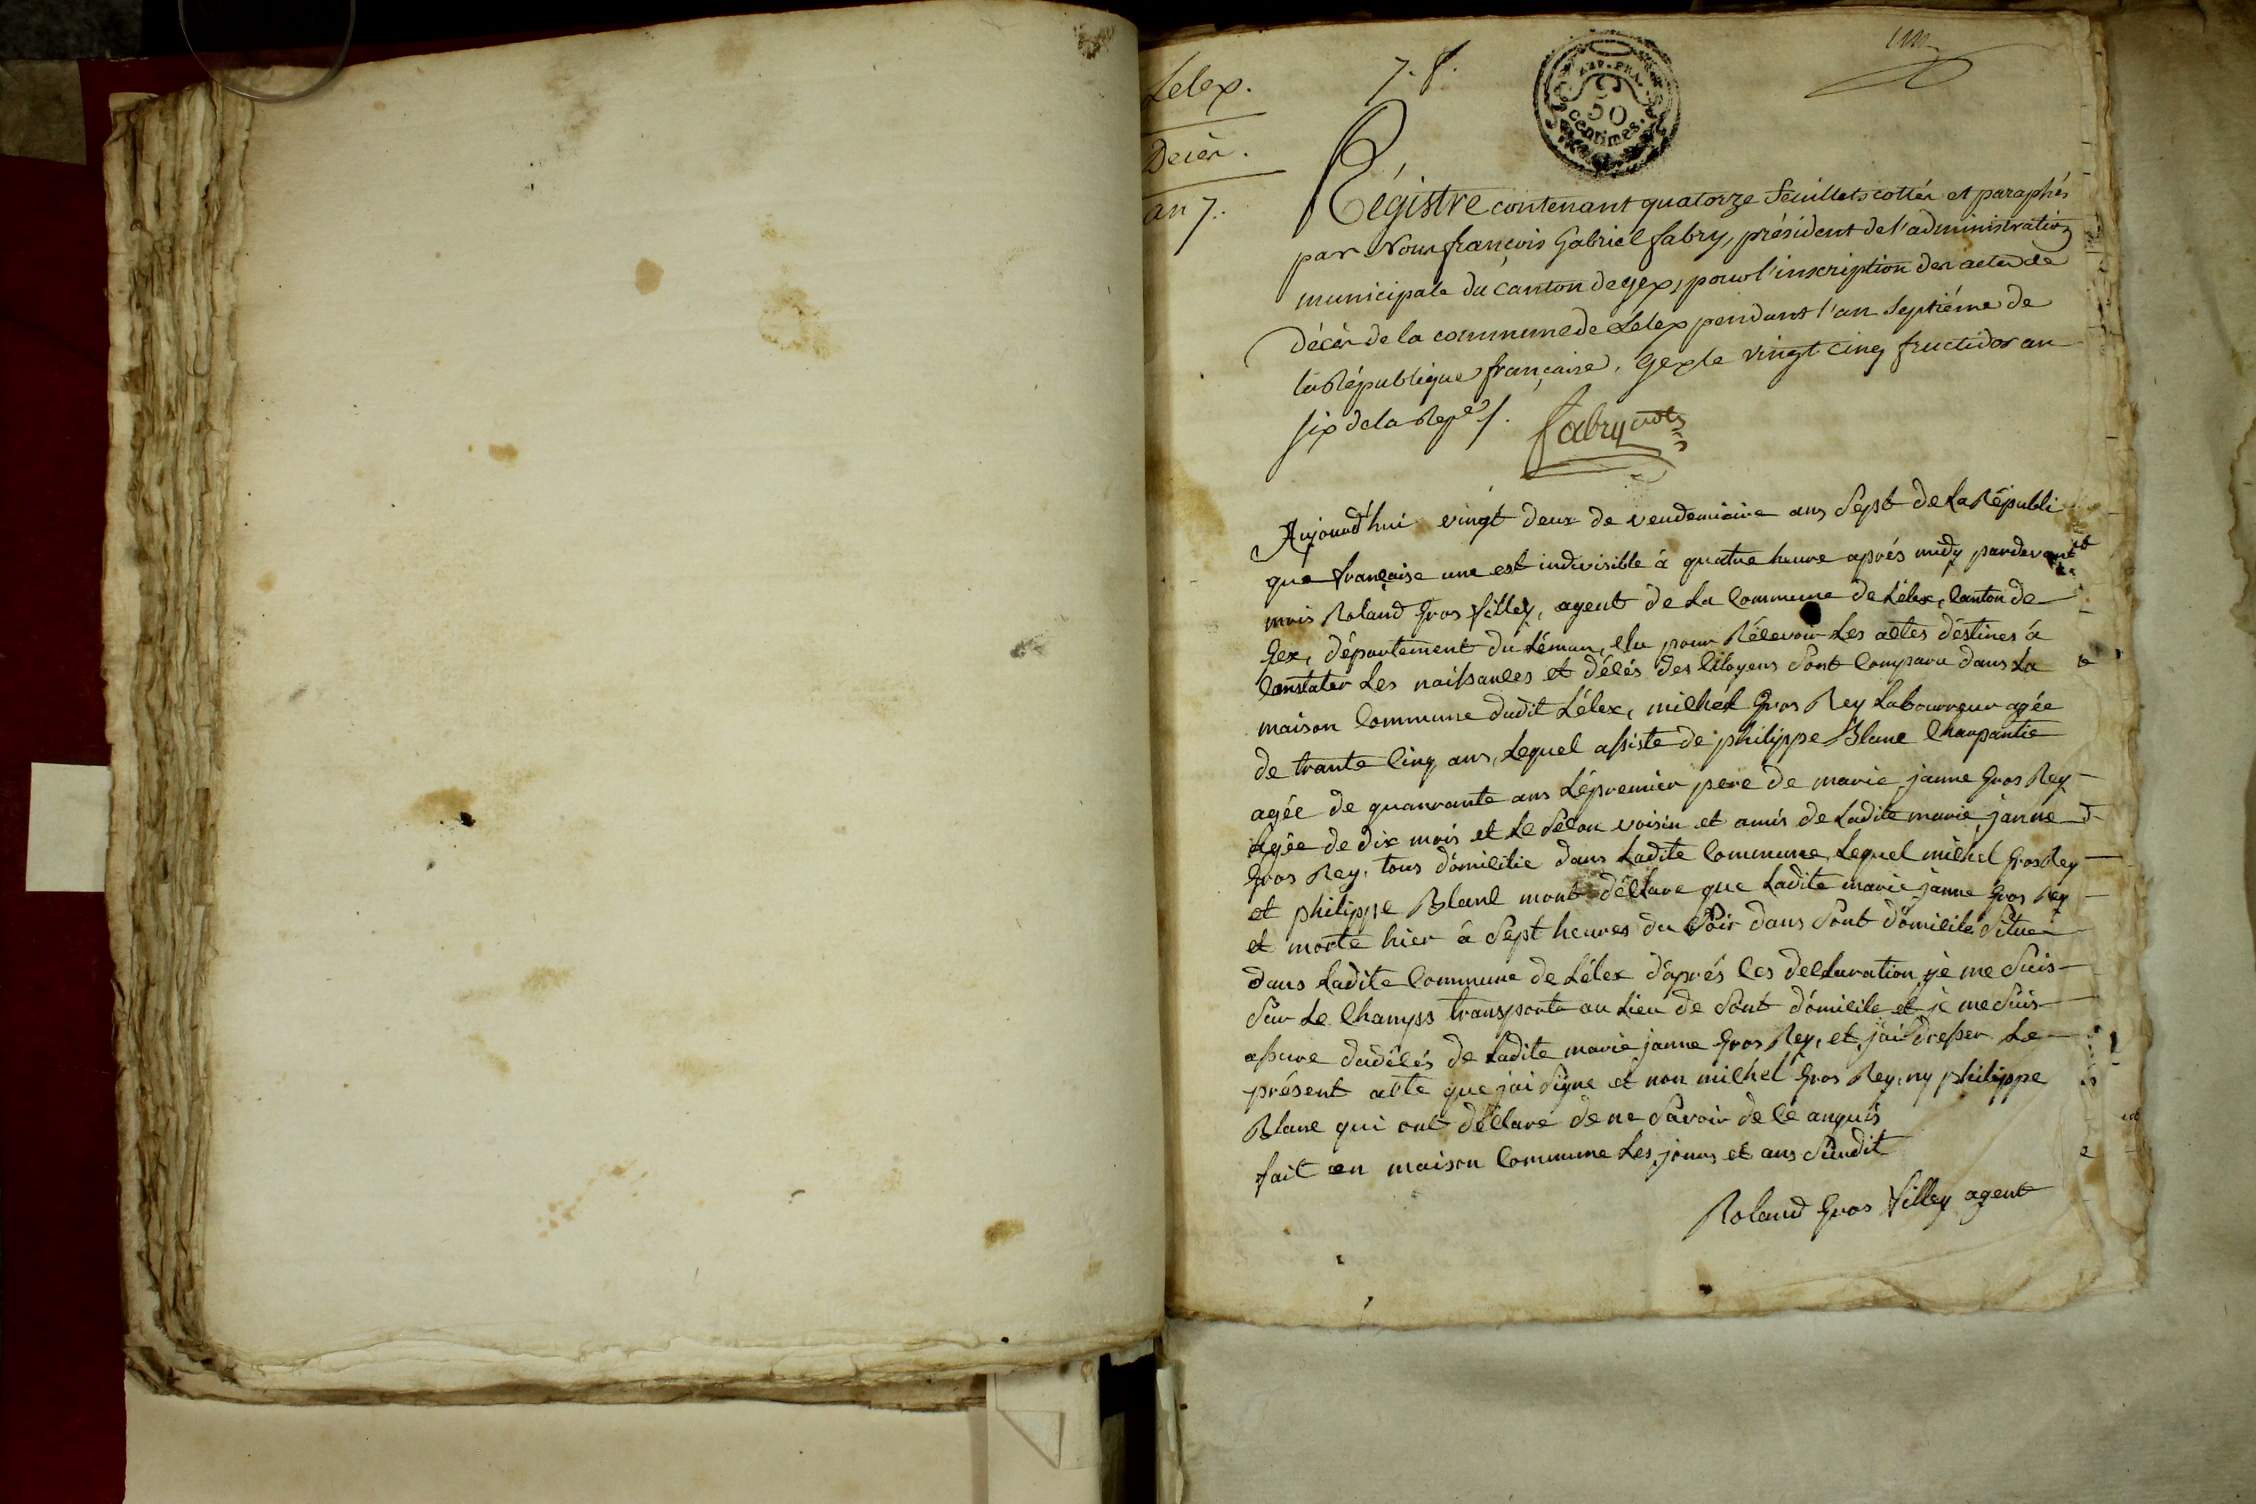 Lelex.
7. 8.
REP. FRA.
50
centimes.
Décès.
an 7.
Régistre contenant quatorze feuillets cottés et paraphés
par Nous françois Gabriel fabry, président de l'administration
municipale du canton de gex, pour l'inscription des actes de
décès de la commune de Lélex pendant l'an septiéme de
la République française. Gex le vingt cinq fructidor an
six de la Repe /.
fabry
Aujourd'hui vingt deux de vendemiaire ans Sept de la Républi
que française une est indivisible á quatre heure aprés midy pardevant
mois Roland Gros filley, agent de la Commune de Lélex, Canton de
Gex, département du Léman, Elu pour Récevoir Les actes déstines á
Constater Les naissances et décés des Citoyens Sont Comparu dans La
maison Commune dudit Lélex, michél Gros Rey Labourreur agée
de trante Cinq ans, Lequel assiste de philippe Blanc Charpantie
agée de quanrante ans Lépremier pere de marie janne Gros Rey
agée de dix mois et Le Secon voisin et amis de Ladite marie janne
Gros Rey, tous domicilie dans Ladite Commune, Lequel michel Gros Rey
et philippe Blanc mont déclare que Ladite marie janne Gros Rey
et morte hier á Sept heures du Soir dans Sont domicile Situer
dans Ladite Commune de Lélex d'aprés Ces declaration, je me Suis
Sur Le Champss transporte au Lieu de Sont domicile et je me Suis
assure dudécés de Ladite marie janne Gros Rey, et j'ai dresser Le
présent acte que jai Signe et non michel Gros Rey, ny philippe
Blanc qui ont déclare de ne Savoir de Ce anquis
fait en maison Commune Les jours et ans Susdit
Roland Gros filley agent